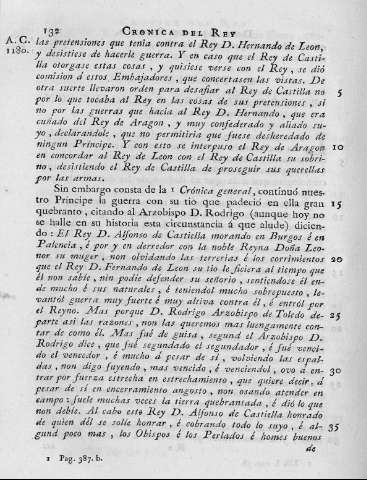 132 CRONICA DEL REY
A. C. las pretensiones que tenia contra el Rey D. Hernando de Leon,
1180. y desistiese de hacerle guerra. Y en caso que el Rey de Casti-
lla otorgase estas cosas, y quisiese verse con el Rey, se dió
comision á estos Embajadores, que concertasen las vistas. De
otra suerte llevaron orden para desafiar al Rey de Castilla no 5
por lo que tocaba al Rey en las cosas de sus pretensiones, si
no por las guerras que hacia al Rey D. Hernando, que era
cuñado del Rey de Aragon, y muy confederado y aliado su-
yo, declarandole, que no permitiria que fuese desheredado de
ningun Príncipe. Y con esto se interpuso el Rey de Aragon 10
en concordar al Rey de Leon con el Rey de Castilla su sobri-
no, desistiendo el Rey de Castilla de proseguir sus querellas
por las armas.
Sin embargo consta de la 1 Crónica general, continuó nues-
tro Príncipe la guerra con su tio que padeció en ella gran 15
quebranto, citando al Arzobispo D. Rodrigo (aunque hoy no
se halle en su historia esta circunstancia á que alude) dicien-
do: El Rey D. Alfonso de Castiella morando en Burgos é en
Palencia, é por y en derredor con la noble Reyna Doña Leo-
nor su muger, non olvidando las terrerías é los corrimientos 20
que el Rey D. Fernando de Leon su tio le ficiera al tiempo que
él non sabie, nin podie defender su señorio, sentiendose él en-
de mucho é sus naturales, é teniendol mucho sobrepuesto, le-
vantól guerra muy fuerte é muy altiva contra él, é entról por
el Reyno. Mas porque D. Rodrigo Arzobispo de Toledo de- 25
parte asi las razones, non las queremos mas luengamente con-
tar de como él. Mas fué de guisa, segund el Arzobispo D.
Rodrigo dice, que fué segundado el segundador, é fué venci-
do el vencedor, é mucho á pesar de sí, volviendo las espal-
das, non digo fuyendo, mas vencido, é venciendol, ovo á en- 30
trar por fuerza estrecha en estrechamiento, que quiere decir, á
pesar de sí en encerramiento angosto, non osando atender en
campo: fuele muchas veces la tierra quebrantada, é dió lo que
non debie. Al cabo este Rey D. Alfonso de Castiella honrado
de quien dél se solie honrar, é cobrando todo lo suyo, é al- 35
gund poco mas, los Obispos é los Perlados é homes buenos
de
1 Pag. 387. b.